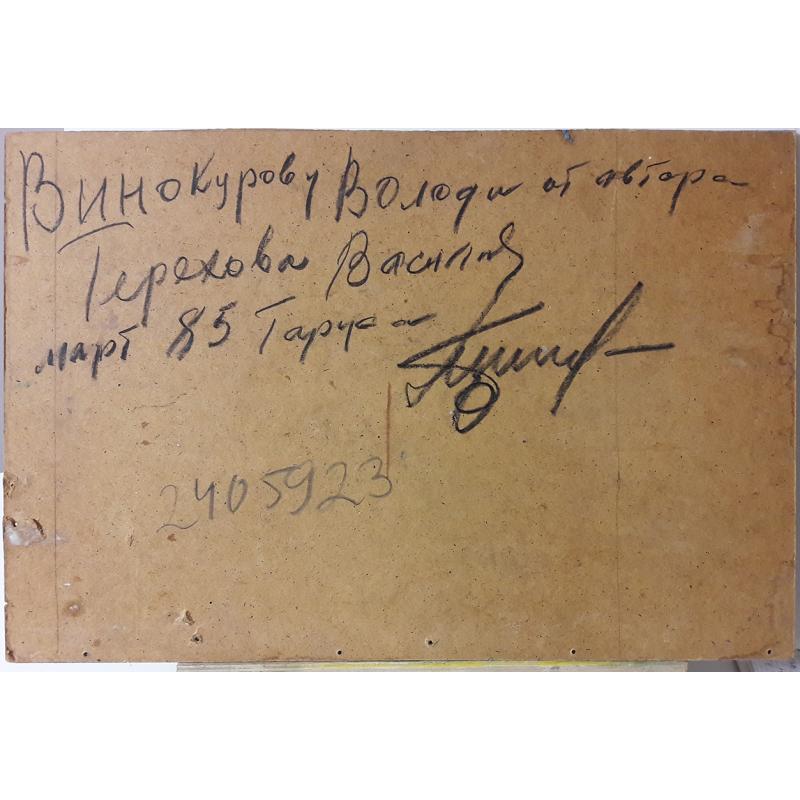 Винокурову Володи от автора
Терехова Василия
март 85 Таруса
2405923